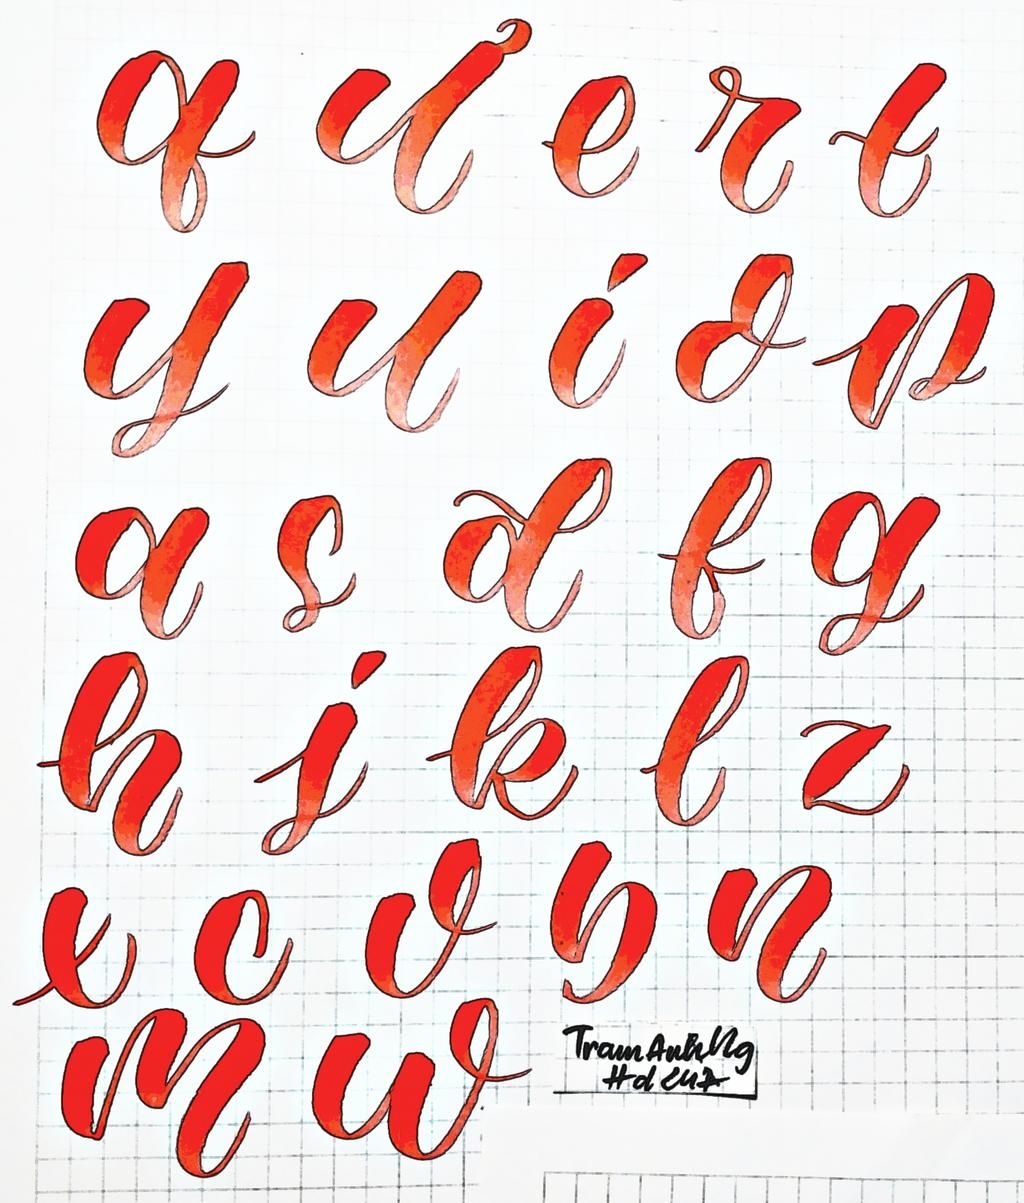 q ư e r t
y u i o p
a s d f g
h j k l z
x c v b n
m w
TramAnhNg